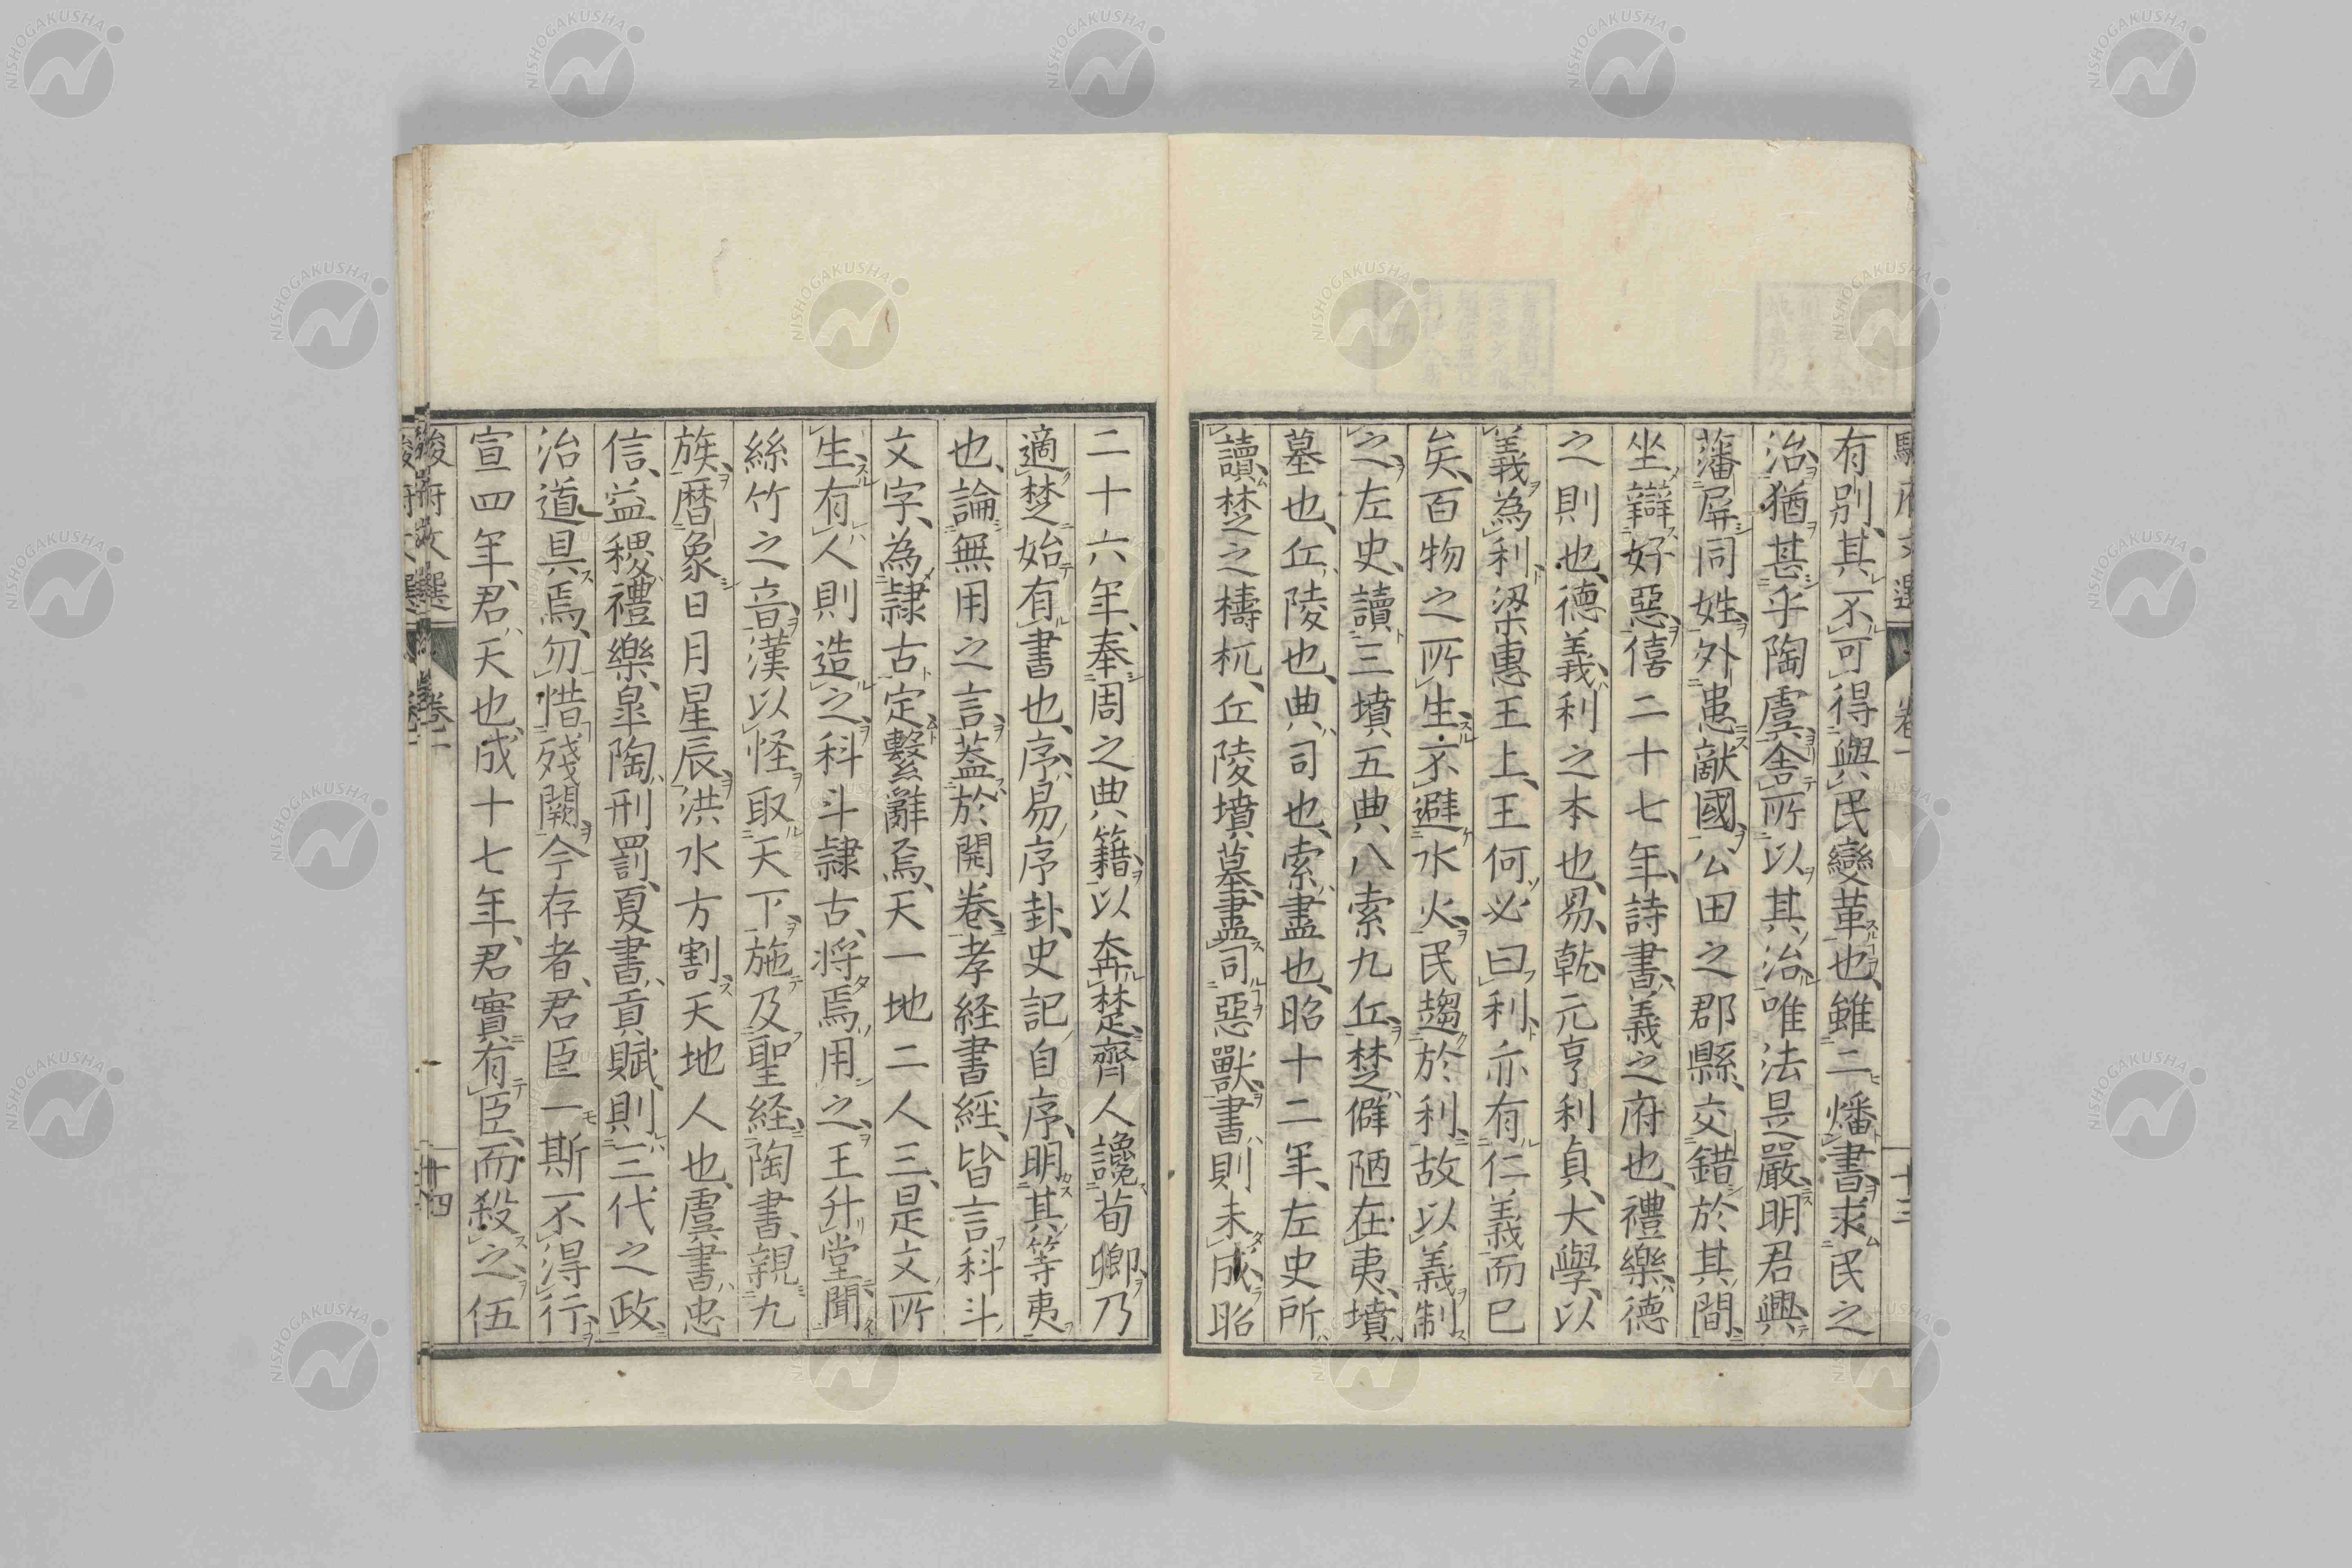 有別其不可得與民變革也雖二燔書求民之
治猶甚乎陶虞舎所以其治唯法是嚴明君興
藩屏同姓外患敵國公田之郡縣交錯於其間
坐辯好惡僖二十七年詩書義之府也禮樂德
之則也德義利之本也易乾元亨利貞大學以
義為利梁惠王上王何必曰利亦有仁義而已
矣百物之所生不避水火民趨於利故以義制
之左史讀三墳五典八索九丘楚僻陋在夷墳
墓也丘陵也典司也索盡也昭十二年左史所
讀楚之檮杌丘陵墳墓盡司惡獸書則未成昭
二十六年奉周之典籍以奔楚齊人讒荀卿乃
適楚始有書也序易序卦史記自序明其等夷
也論無用之言蓋於開卷孝経書經皆言科斗
文字為隷古定繫辭焉天一地二人三是文所
生有人則造之科斗隷古將焉用之王升堂聞
絲竹之音漢以怪取天下施及聖経陶書親九
族暦象日月星辰洪水方割天地人也虞書忠
信益稷禮樂皐陶刑罰夏書貢賦則三代之政
治道具焉勿惜殘闕今存者君臣一斯不得行
宣四年君天也成十七年君實有臣而殺之伍
駿府文選
卷一
十三
卷二
十四
NISHOGAKUSHA